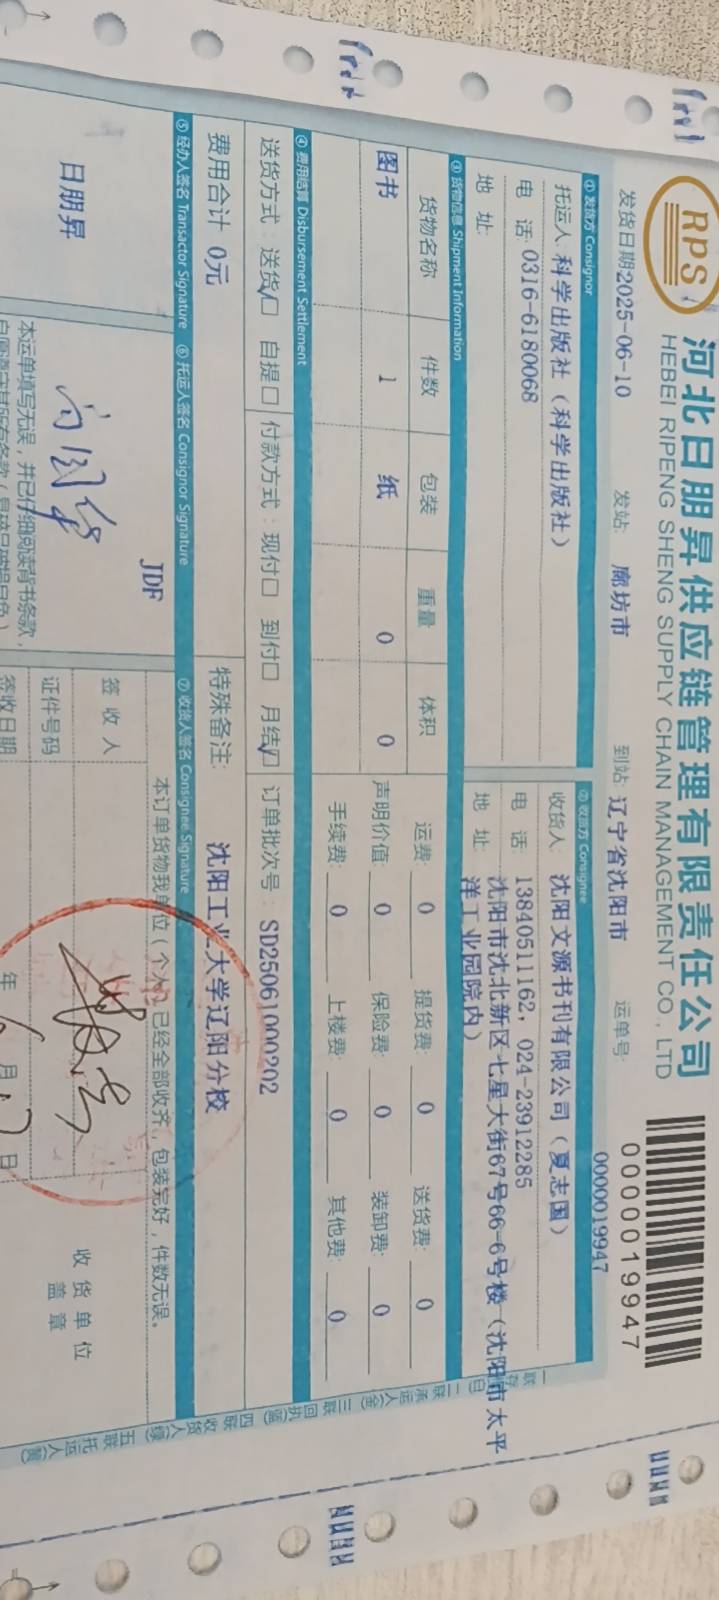 RPS
河北日朋昇供应链管理有限责任公司
HEBEI RIPENG SHENG SUPPLY CHAIN MANAGEMENT CO., LTD
0000019947
发货日期:2025-06-10 发站: 廊坊市 到站: 辽宁省沈阳市 运单号: 0000019947
① 发货方 Consignor ② 收货方 Consignee
托运人: 科学出版社（科学出版社） 收货人: 沈阳文源书刊有限公司（夏志国）
电 话: 0316-6180068 电 话: 13840511162, 024-23912285
地 址: 地 址: 沈阳市沈北新区七星大街67号66-6号楼（沈阳市太平
洋工业园院内）
③ 货物信息 Shipment Information
货物名称 件数 包装 重量 体积 运费: 0 提货费: 0 送货费: 0
图书 1 纸 0 0 声明价值: 0 保险费: 0 装卸费: 0
手续费: 0 上楼费: 0 其他费: 0
④ 费用结算 Disbursement Settlement
送货方式：送货√□ 自提□ 付款方式：现付□ 到付□ 月结√□ 订单批次号：SD25061000202
费用合计 0元 特殊备注: 沈阳工业大学辽阳分校
⑤ 经办人签名 Transactor Signature ⑥ 托运人签名 Consignor Signature ⑦ 收货人签名 Consignee Signature
JDF 本订单货物我单位（个人）已经全部收齐，包装完好，件数无误。
日朋昇 签 收 人 收 货 单 位
证件号码 盖 章
本运单填写无误，并已仔细阅读背书条款，
签收日期 年 6 月 17 日
一联存 (白) 二联承运人 (金) 三联回执 (蓝) 四联收货人 (绿) 五联托运人 (黄)